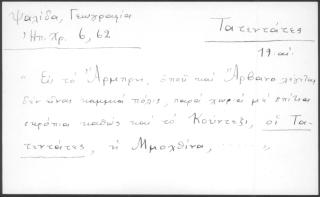 Ψαλίδα, Γεωγραφία
Ἠπ. Χρ. 6, 62
Τατεντάτες
19. αἰ.
"Εἰς τὸ Ἄρμπρι, ὁποῦ καὶ Ἄρβανο λέγεται
δὲν εἶναι καμμιὰ πόλις, παρὰ χωριὰ μὲ σπίτια
σκρόπια καθὼς καὶ τὸ Κούντεξι, οἱ Τα-
τεντάτες, ἡ Μμοχθίνα, ...... "